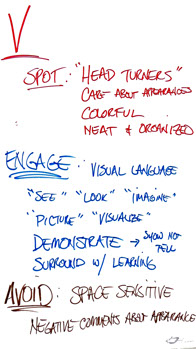 V
SPOT: "HEAD TURNERS"
CARE ABOUT APPEARANCES
COLORFUL
NEAT & ORGANIZED
ENGAGE: VISUAL LANGUAGE
"SEE" "LOOK" "IMAGINE"
"PICTURE" "VISUALIZE"
DEMONSTRATE → SHOW NOT
TELL
SURROUND W/ LEARNING
AVOID: SPACE SENSITIVE
NEGATIVE COMMENTS ABOUT APPEARANCE